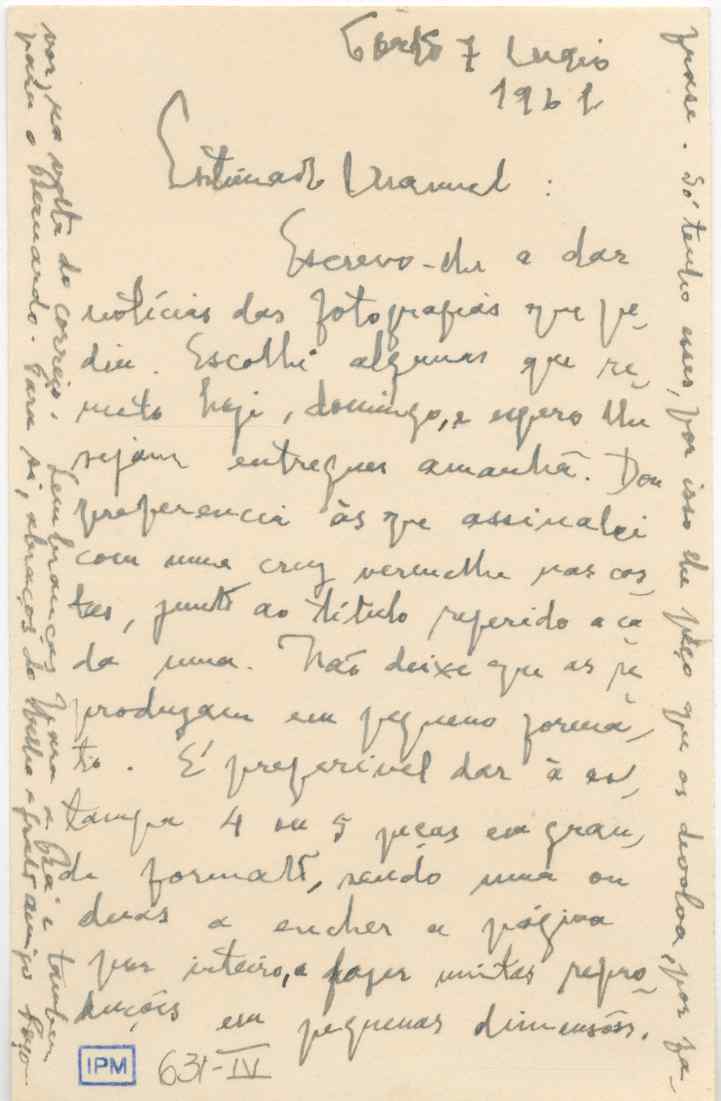 7
196
Estimado Manuel :
Escrevo-lhe a dar
notícias das fotografias que pe-
diu. Escolhi algumas que re-
meto hoje, domingo, e espero lhe
sejam entregues amanhã. Dou
preferencia às que assinalei
com uma cruz vermelha nas cos-
tas, junto ao título referido a ca-
da uma. Não deixe que as re-
produzam em pequeno forma-
to. É preferivel dar à es-
tampa 4 ou 5 peças em gran-
de formato, sendo uma ou
duas a encher a página
por inteiro, a fazer muitas repro-
duções em pequenas dimensões.
frase. Só tenho esses, por isso lhe peço que os devolva, por fa-
vor, na volta do correio. Lembranças para a e tambem
para o Bernardo. Para si, abraços do velho e grato amigo
IPM
631-IV